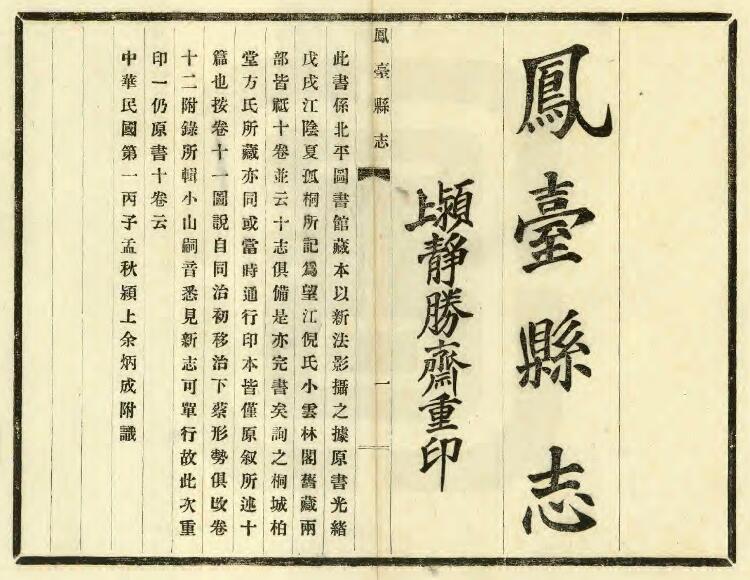 鳳臺縣志
潁上靜勝齋重印
鳳臺縣志
一
此書係北平圖書館藏本以新法影攝之據原書光緒
戊戌江陰夏孤桐所記爲望江倪氏小雲林閣舊藏兩
部皆祗十卷並云十志俱備是亦完書矣詢之桐城柏
堂方氏所藏亦同或當時通行印本皆僅原叙所述十
篇也按卷十一圖說自同治初移治下蔡形勢俱改卷
十二附錄所輯小山嗣音悉見新志可單行故此次重
印一仍原書十卷云
中華民國第一丙子孟秋潁上余炳成附識